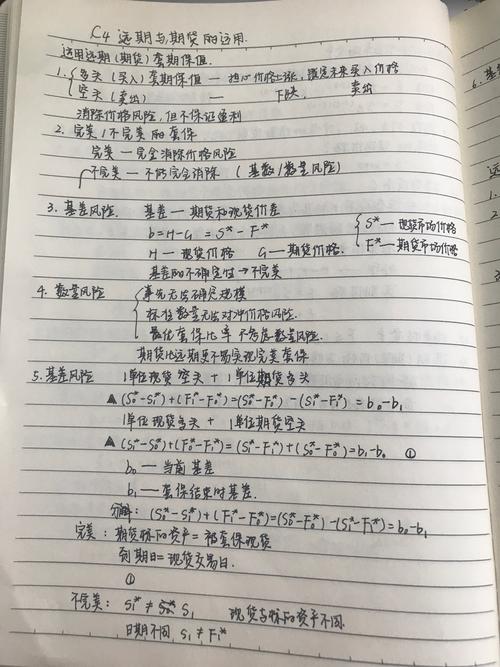 C4 远期与期货的运用.
运用远期(期货)套期保值.
1. { 多头(买入)套期保值 — 担心价格上涨, 锁定未来买入价格
空头(卖出) — 下跌, 卖出
消除价格风险, 但不保证盈利
2. 完美/不完美的套保
完美 — 完全消除价格风险
不完美 — 不能完全消除 (基数/数量风险)
3. 基差风险. 基差 — 期货和现货价差
b=H-G = S* - F* { S* — 现货市场价格
H — 现货价格 G — 期货价格. F* — 期货市场价格
基差的不确定性→不完美
4. 数量风险 { 事先无法确定规模
标准数量无法对冲价格风险.
最优套保比率 不考虑数量风险.
期货比远期更不易实现完美套保
5. 基差风险 1单位现货空头 + 1单位期货多头
▲(S₀*-S₁*)+(F₁*-F₀*)=(S₀*-F₀*)-(S₁*-F₁*) = b₀-b₁
1单位现货多头 + 1单位期货空头
▲(S₁*-S₀*)+(F₀*-F₁*)=(S₁*-F₁*)+(S₀*-F₀*)=b₁-b₀ ①
b₀ — 当前基差
b₁ — 套保结束时基差.
分解: (S₀*-S₁*)+(F₁*-F₀*)=(S₀*-F₀*)-(S₁*-F₁*)=b₀-b₁
完美: 期货标的资产=被套保现货
到期日=现货交易日.
①
不完美: S₁* ≠ S₁ 现货与标的资产不同.
日期不同 S₁≠F₁*